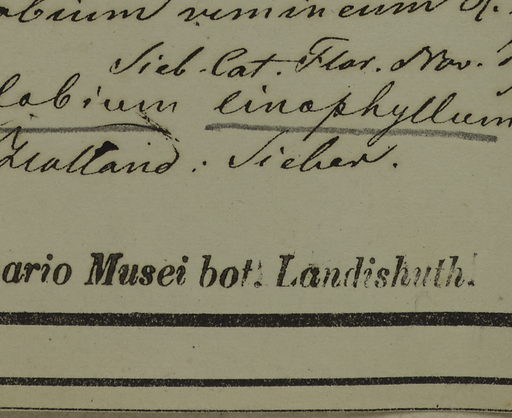 obium vimineum R.
Sieb. Cat. Flor. Nov.
lobium linophyllum
Holland. Sieber.
ario Musei bot. Landishuth.